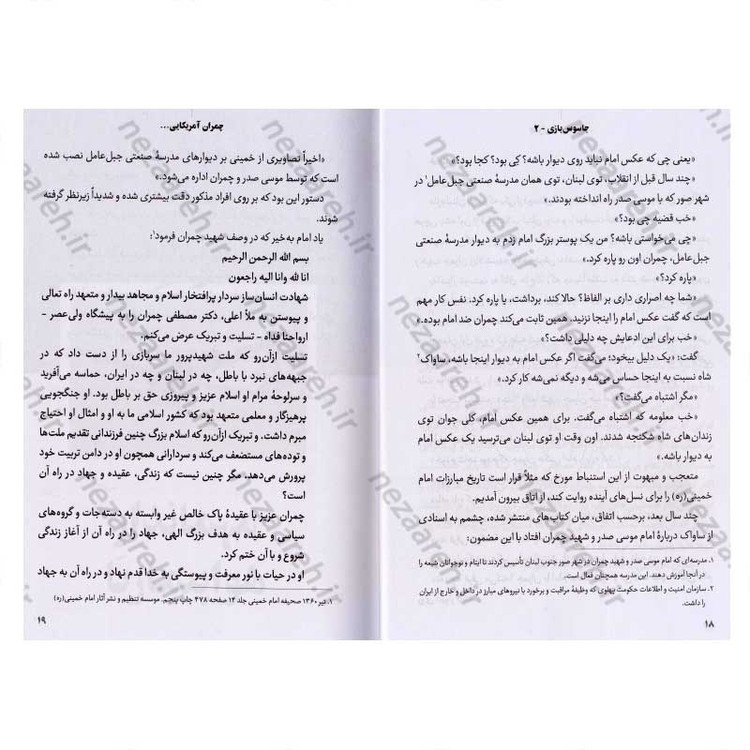 جاسوس‌بازی - ۲
«یعنی چی که عکس امام نباید روی دیوار باشه؟ کِی بود؟ کجا بود؟»
«چند سال قبل از انقلاب، توی لبنان، توی همان مدرسهٔ صنعتی جبل‌عامل۱ در
شهر صور که با موسی صدر راه انداخته بودند.»
«خب قضیه چی بود؟»
«چی می‌خواستی باشه؟ من یک پوستر بزرگ امام زدم به دیوار مدرسهٔ صنعتی
جبل‌عامل، چمران اون رو پاره کرد.»
«پاره کرد؟»
«شما چه اصراری داری بر الفاظ؟ حالا کند، برداشت، یا پاره کرد. نفس کار مهم
است که گفت عکس امام را اینجا نزنید. همین ثابت می‌کند چمران ضد امام بوده.»
«خب برای این ادعایش چه دلیلی داشت؟»
گفت: «یک دلیل بیخود؛ می‌گفت اگر عکس امام به دیوار اینجا باشه، ساواک۲
شاه نسبت به اینجا حساس می‌شه و دیگه نمی‌شه کار کرد.»
«مگر اشتباه می‌گفت؟»
«خب معلومه که اشتباه می‌گفت. برای همین عکس امام، کلی جوان توی
زندان‌های شاه شکنجه شدند. اون وقت او توی لبنان می‌ترسید یک عکس امام
به دیوار باشه.»
متعجب و مبهوت از این استنباط مورخ که مثلاً قرار است تاریخ مبارزات امام
خمینی(ره) را برای نسل‌های آینده روایت کند، از اتاق بیرون آمدیم.
چند سال بعد، برحسب اتفاق، میان کتاب‌های منتشر شده، چشمم به اسنادی
از ساواک دربارهٔ امام موسی صدر و شهید چمران افتاد با این مضمون:
۱. مدرسه‌ای که امام موسی صدر و شهید چمران در شهر صور جنوب لبنان تأسیس کردند تا ایتام و نوجوانان شیعه را
در آنجا آموزش دهند. این مدرسه همچنان فعال است.
۲. سازمان امنیت و اطلاعات حکومت پهلوی که وظیفهٔ مراقبت و برخورد با نیروهای مبارز در داخل و خارج از ایران
را داشت.
۱۸
چمران آمریکایی...
«اخیراً تصاویری از خمینی بر دیوارهای مدرسهٔ صنعتی جبل‌عامل نصب شده
است که توسط موسی صدر و چمران اداره می‌شود.»
دستور این بود که بر روی افراد مذکور دقت بیشتری شده و شدیداً زیرنظر گرفته
شوند.
یاد امام به‌خیر که در وصف شهید چمران فرمود۱:
بسم الله الرحمن الرحیم
انا لله وانا الیه راجعون
شهادت انسان‌ساز سردار پرافتخار اسلام و مجاهد بیدار و متعهد راه تعالی
و پیوستن به ملأ اعلی، دکتر مصطفی چمران را به پیشگاه ولی‌عصر -
ارواحنا فداه - تسلیت و تبریک عرض می‌کنم.
تسلیت ازآن‌رو که ملت شهیدپرور ما سربازی را از دست داد که در
جبهه‌های نبرد با باطل، چه در لبنان و چه در ایران، حماسه می‌آفرید
و سرلوحهٔ مرام او اسلام عزیز و پیروزی حق بر باطل بود. او جنگجویی
پرهیزگار و معلمی متعهد بود که کشور اسلامی ما به او و امثال او احتیاج
مبرم داشت. و تبریک ازآن‌رو که اسلام بزرگ چنین فرزندانی تقدیم ملت‌ها
و توده‌های مستضعف می‌کند و سردارانی همچون او در دامن تربیت خود
پرورش می‌دهد. مگر چنین نیست که زندگی، عقیده و جهاد در راه آن
است؟
چمران عزیز با عقیدهٔ پاک خالص غیر وابسته به دسته‌جات و گروه‌های
سیاسی و عقیده به هدف بزرگ الهی، جهاد را در راه آن از آغاز زندگی
شروع و با آن ختم کرد.
او در حیات با نور معرفت و پیوستگی به خدا قدم نهاد و در راه آن به جهاد
۱. تیر ۱۳۶۰ صحیفه امام خمینی جلد ۱۴ صفحه ۴۷۸ چاپ پنجم. موسسه تنظیم و نشر آثار امام خمینی(ره)
۱۹
nezaareh.ir